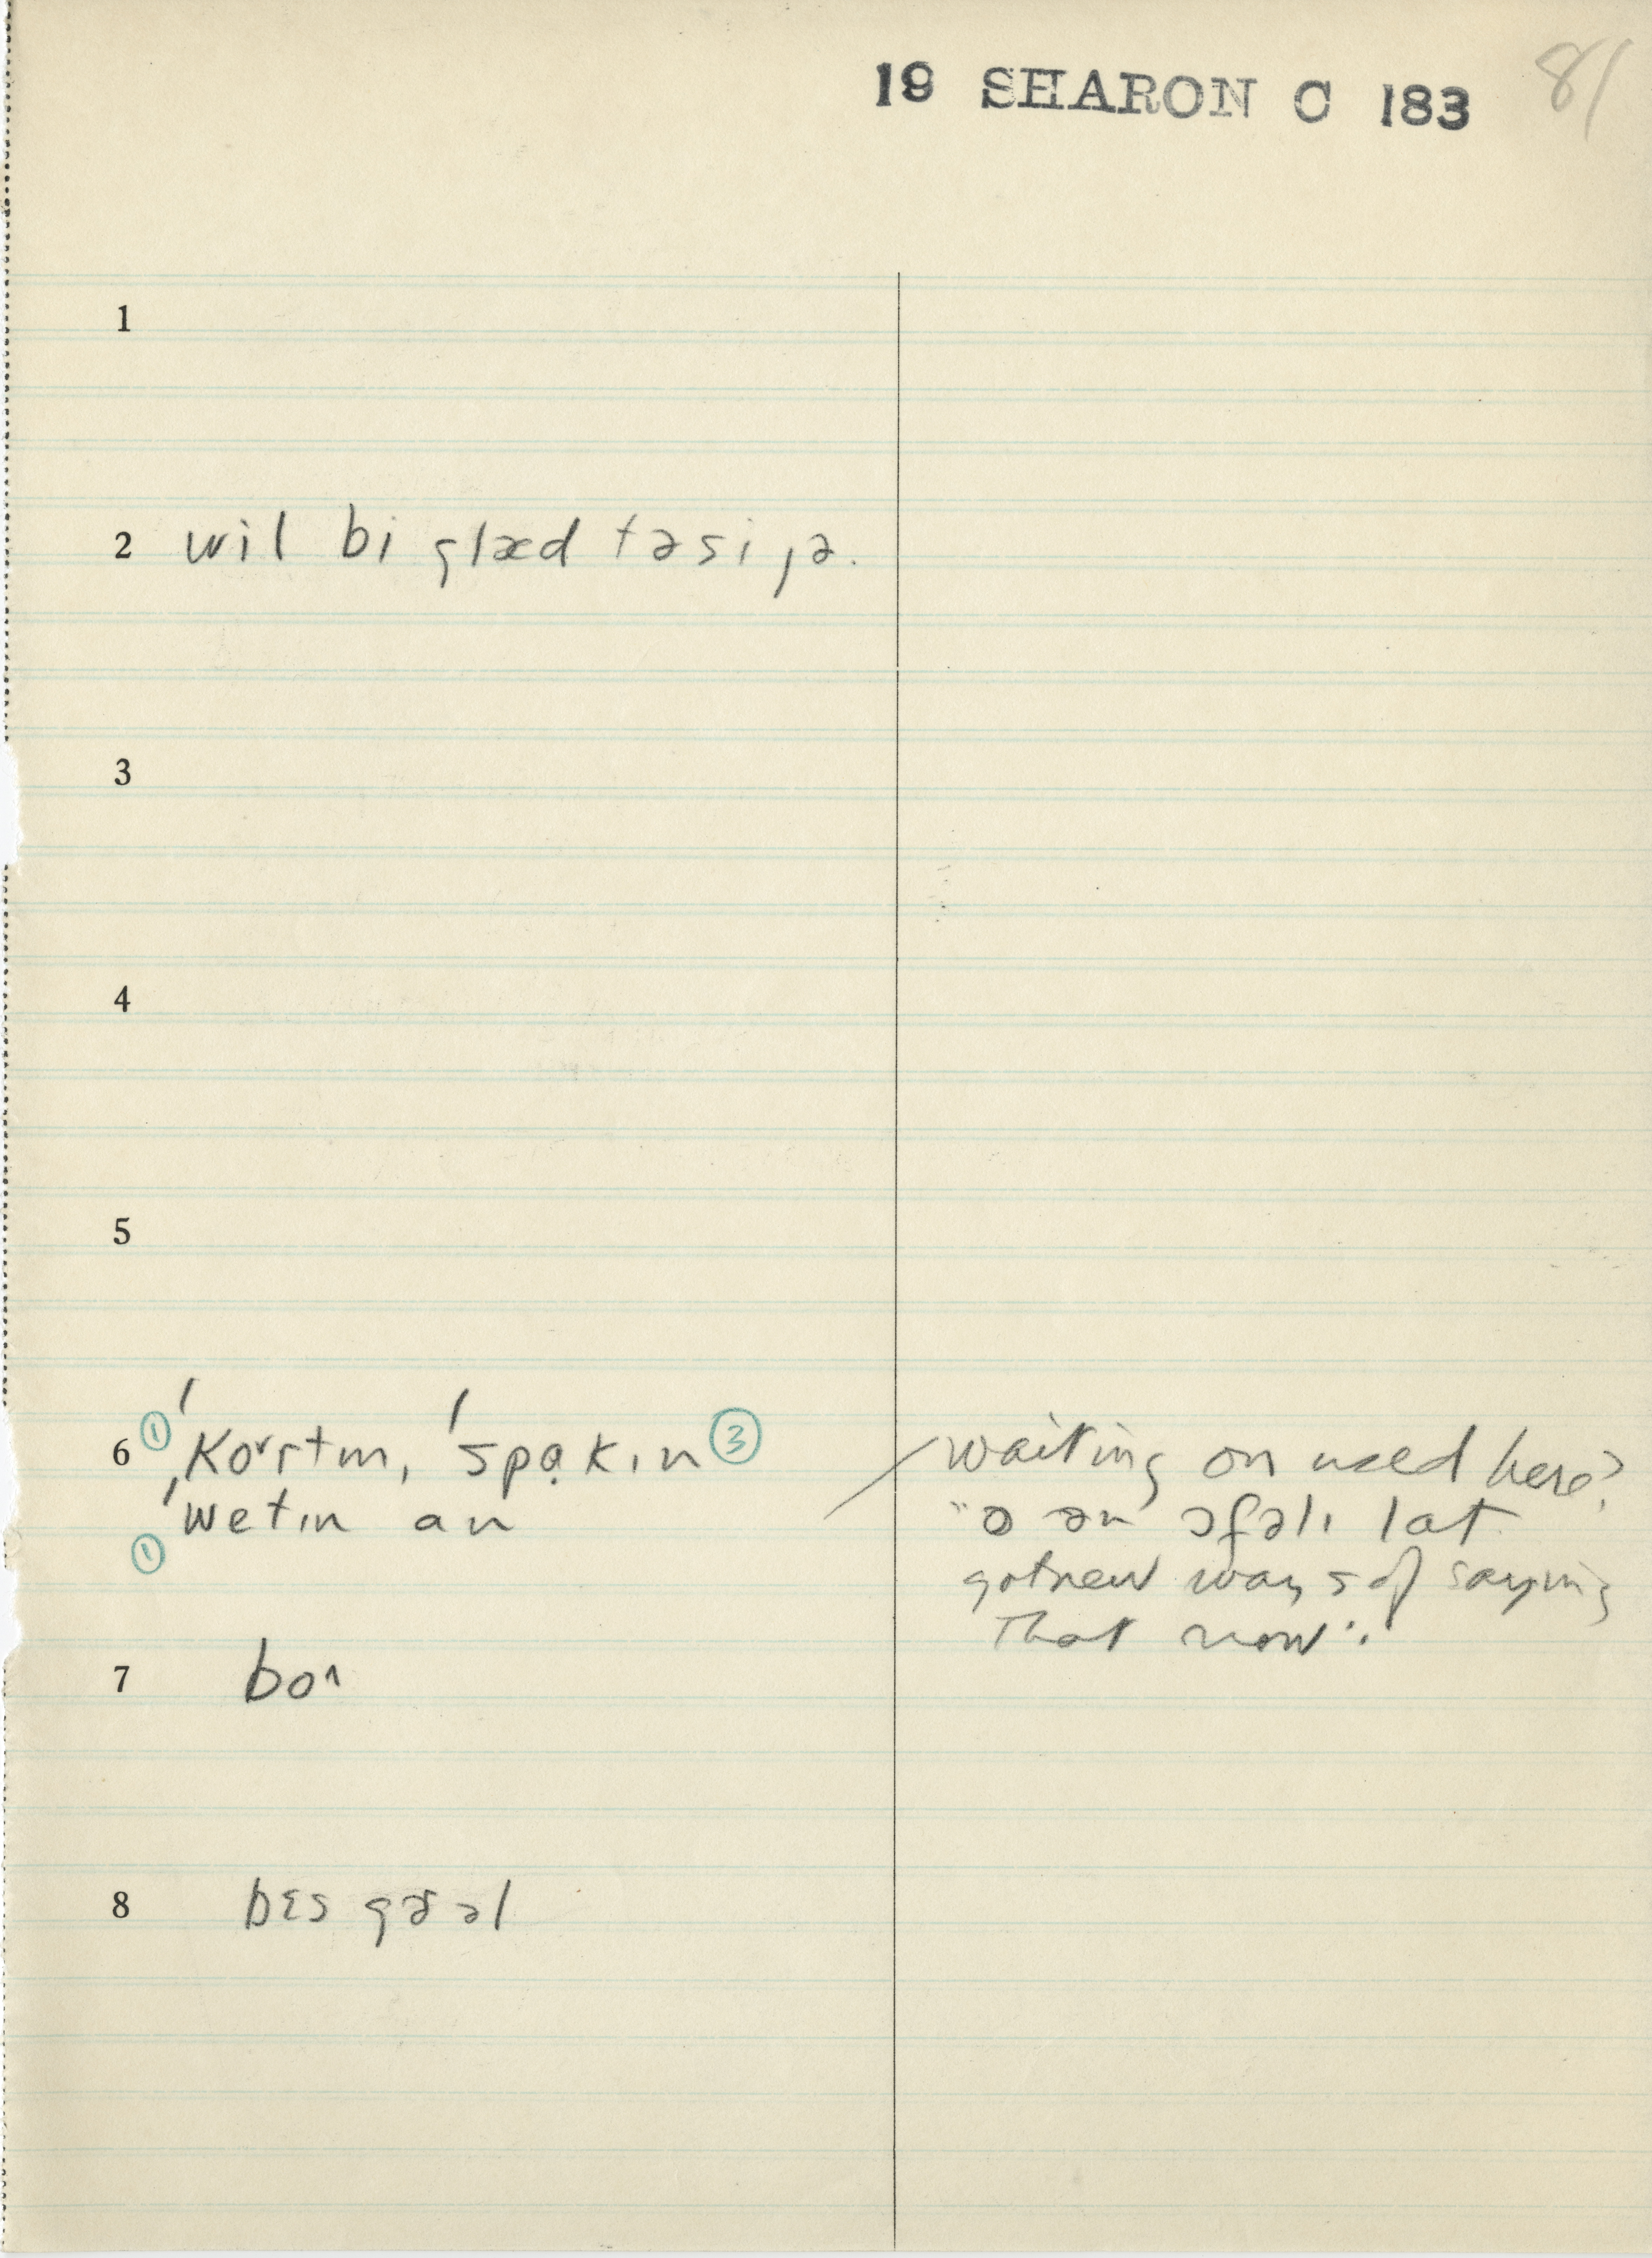 19 SHARON C 183 81
1
2 wil bi glæd təsi jə.
3
4
5
6 ① 'kɔrtɪn, 'spakɪn ③
'wetɪn an
①
waiting on used here?
"ə ən əfəlɪ lat
got new ways of saying
that now".
7 bo^
8 bɛs gəəl